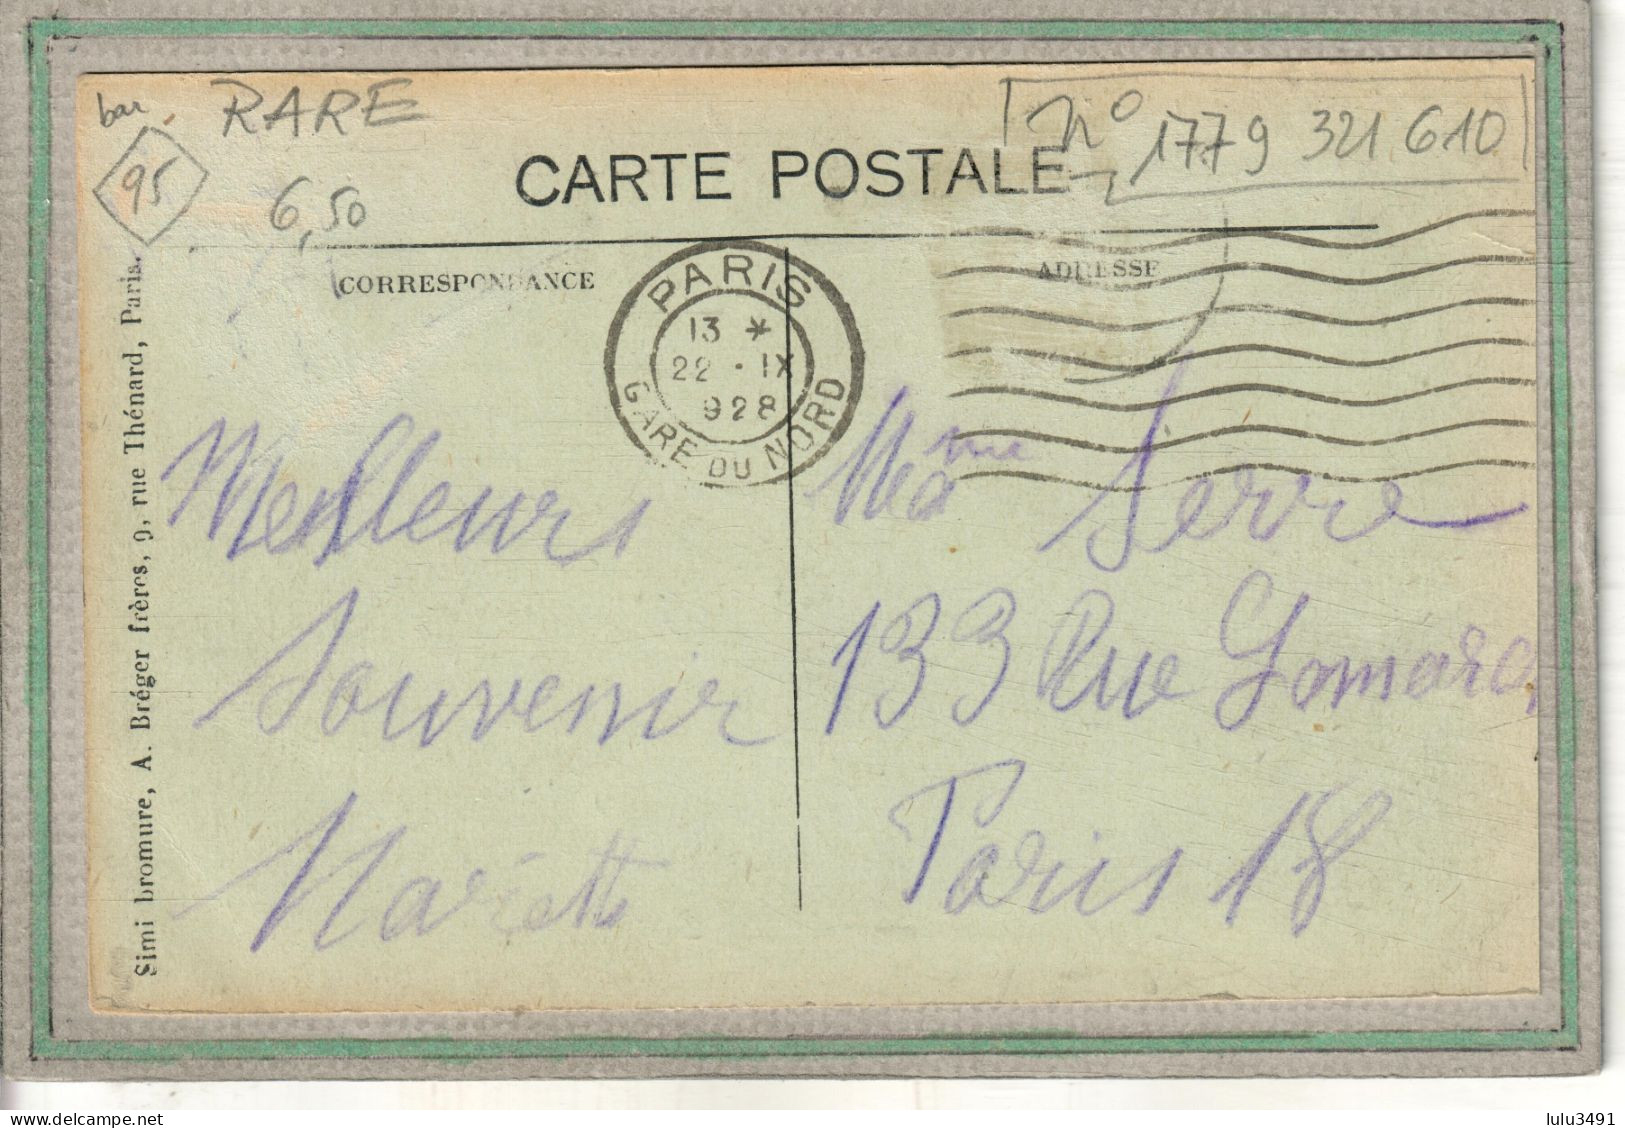 bar
RARE
95
6,50
n° 1779 321 610
CARTE POSTALE
CORRESPONDANCE
ADRESSE
PARIS
13 *
22 - IX
928
GARE DU NORD
Meilleurs
Souvenir
Mariette
Mame Serre
133 Rue
Paris 18
Simi bromure, A. Bréger frères, 9, rue Thénard, Paris.
delcampe.net
lulu3491